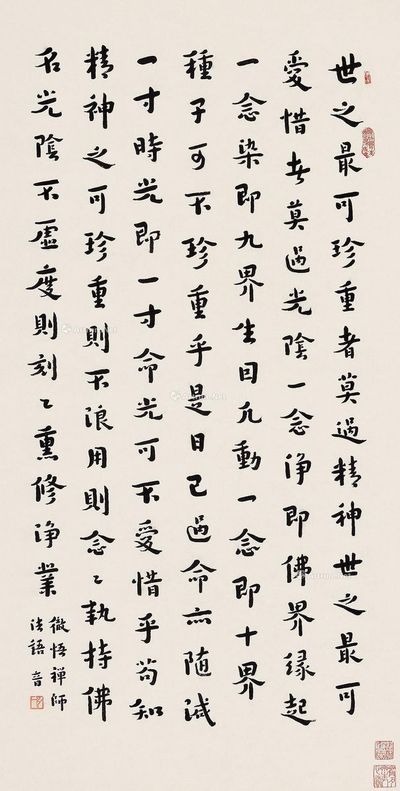 世之最可珍重者莫過精神世之最可
愛惜者莫過光陰一念淨即佛界緣起
一念染即九界生因凡動一念即十界
種子可不珍重乎是日已過命亦隨減
一寸時光即一寸命光可不愛惜乎苟知
精神之可珍重則不浪用則念〻執持佛
名光陰不虛度則刻〻熏修淨業
徹悟禪師
法語 音